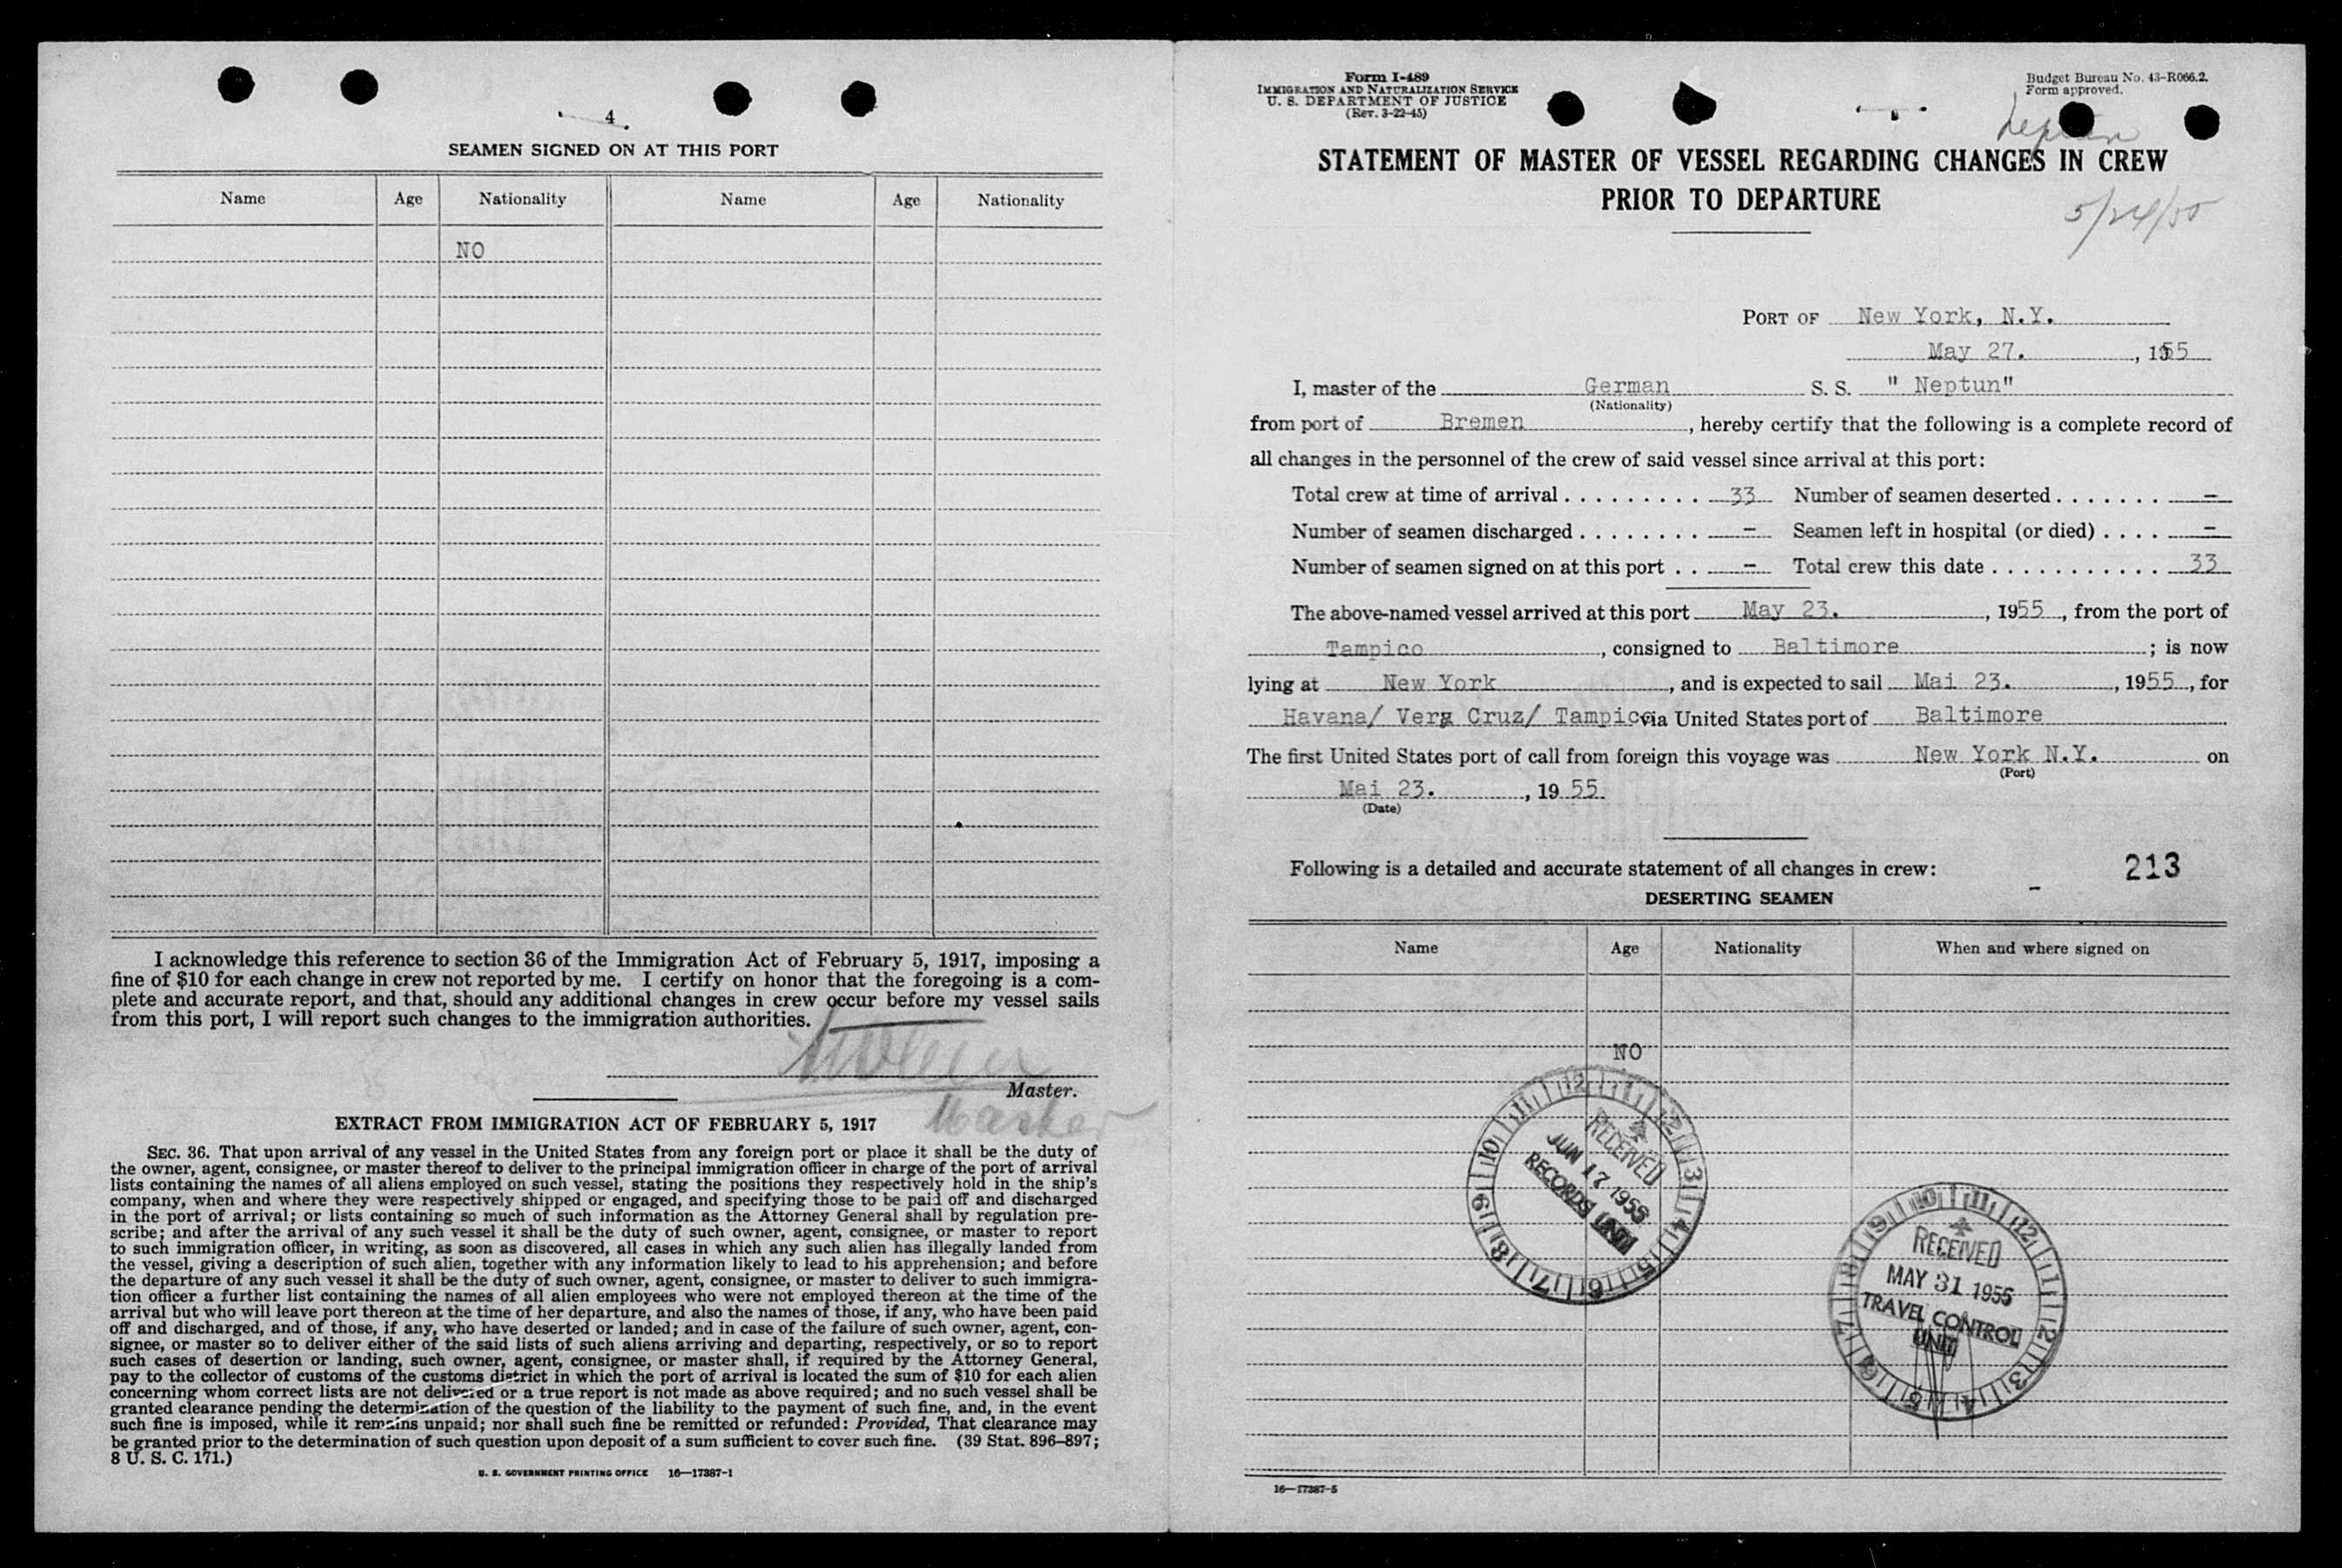 4
SEAMEN SIGNED ON AT THIS PORT
Name Age Nationality Name Age Nationality
NO
I acknowledge this reference to section 36 of the Immigration Act of February 5, 1917, imposing a
fine of $10 for each change in crew not reported by me. I certify on honor that the foregoing is a com-
plete and accurate report, and that, should any additional changes in crew occur before my vessel sails
from this port, I will report such changes to the immigration authorities.
Master.
Master
EXTRACT FROM IMMIGRATION ACT OF FEBRUARY 5, 1917
SEC. 36. That upon arrival of any vessel in the United States from any foreign port or place it shall be the duty of
the owner, agent, consignee, or master thereof to deliver to the principal immigration officer in charge of the port of arrival
lists containing the names of all aliens employed on such vessel, stating the positions they respectively hold in the ship's
company, when and where they were respectively shipped or engaged, and specifying those to be paid off and discharged
in the port of arrival; or lists containing so much of such information as the Attorney General shall by regulation pre-
scribe; and after the arrival of any such vessel it shall be the duty of such owner, agent, consignee, or master to report
to such immigration officer, in writing, as soon as discovered, all cases in which any such alien has illegally landed from
the vessel, giving a description of such alien, together with any information likely to lead to his apprehension; and before
the departure of any such vessel it shall be the duty of such owner, agent, consignee, or master to deliver to such immigra-
tion officer a further list containing the names of all alien employees who were not employed thereon at the time of the
arrival but who will leave port thereon at the time of her departure, and also the names of those, if any, who have been paid
off and discharged, and of those, if any, who have deserted or landed; and in case of the failure of such owner, agent, con-
signee, or master so to deliver either of the said lists of such aliens arriving and departing, respectively, or so to report
such cases of desertion or landing, such owner, agent, consignee, or master shall, if required by the Attorney General,
pay to the collector of customs of the customs district in which the port of arrival is located the sum of $10 for each alien
concerning whom correct lists are not delivered or a true report is not made as above required; and no such vessel shall be
granted clearance pending the determination of the question of the liability to the payment of such fine, and, in the event
such fine is imposed, while it remains unpaid; nor shall such fine be remitted or refunded: Provided, That clearance may
be granted prior to the determination of such question upon deposit of a sum sufficient to cover such fine. (39 Stat. 896–897;
8 U. S. C. 171.)
U. S. GOVERNMENT PRINTING OFFICE 16—17387-1
Form I-489
IMMIGRATION AND NATURALIZATION SERVICE
U. S. DEPARTMENT OF JUSTICE
(Rev. 3-22-45)
Budget Bureau No. 43-R066.2.
Form approved.
Neptun
STATEMENT OF MASTER OF VESSEL REGARDING CHANGES IN CREW
PRIOR TO DEPARTURE
5/24/55
PORT OF New York, N.Y.
May 27. , 1955
I, master of the German S. S. " Neptun"
(Nationality)
from port of Bremen , hereby certify that the following is a complete record of
all changes in the personnel of the crew of said vessel since arrival at this port:
Total crew at time of arrival . . . . . . . . . 33 Number of seamen deserted . . . . . . . -
Number of seamen discharged . . . . . . . . - Seamen left in hospital (or died) . . . . -
Number of seamen signed on at this port . . - Total crew this date . . . . . . . . . . . 33
The above-named vessel arrived at this port May 23. , 1955 , from the port of
Tampico , consigned to Baltimore ; is now
lying at New York , and is expected to sail Mai 23. , 1955 , for
Havana/ Verz Cruz/ Tampico via United States port of Baltimore
The first United States port of call from foreign this voyage was New York N.Y. on
(Port)
Mai 23. , 19 55
(Date)
Following is a detailed and accurate statement of all changes in crew:
213
-
DESERTING SEAMEN
Name Age Nationality When and where signed on
NO
RECEIVED
JUN 17 1955
RECORDS UNIT
12 1 2 3 4 5 6 7 8 9 10 11
RECEIVED
MAY 31 1955
TRAVEL CONTROL
UNIT
10 11 12 1 2 3 4 5 6 7 8 9
16—17387-5